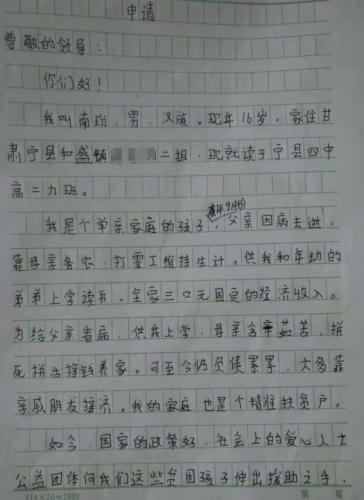 申请
尊敬的领导：
你们好！
我叫南玢，男，汉族。现年16岁。家住甘
肃宁县和盛镇二组，现就读于宁县四中
高二九班。
我是个单亲家庭的孩子，去年9月份父亲因病去逝，
靠母亲务农、打零工维持生计。供我和年幼的
弟弟上学读书。全家三口无固定的经济收入。
为给父亲看病，供我上学，母亲含辛茹苦，拼
死拼活挣钱养家。可至今仍负债累累，大多靠
亲戚朋友接济。我的家庭也是个精准扶贫户。
如今，国家的政策好，社会上的爱心人士
公益团体向我们这些贫困孩子伸出援助之手，
(14×20=280)
第 页